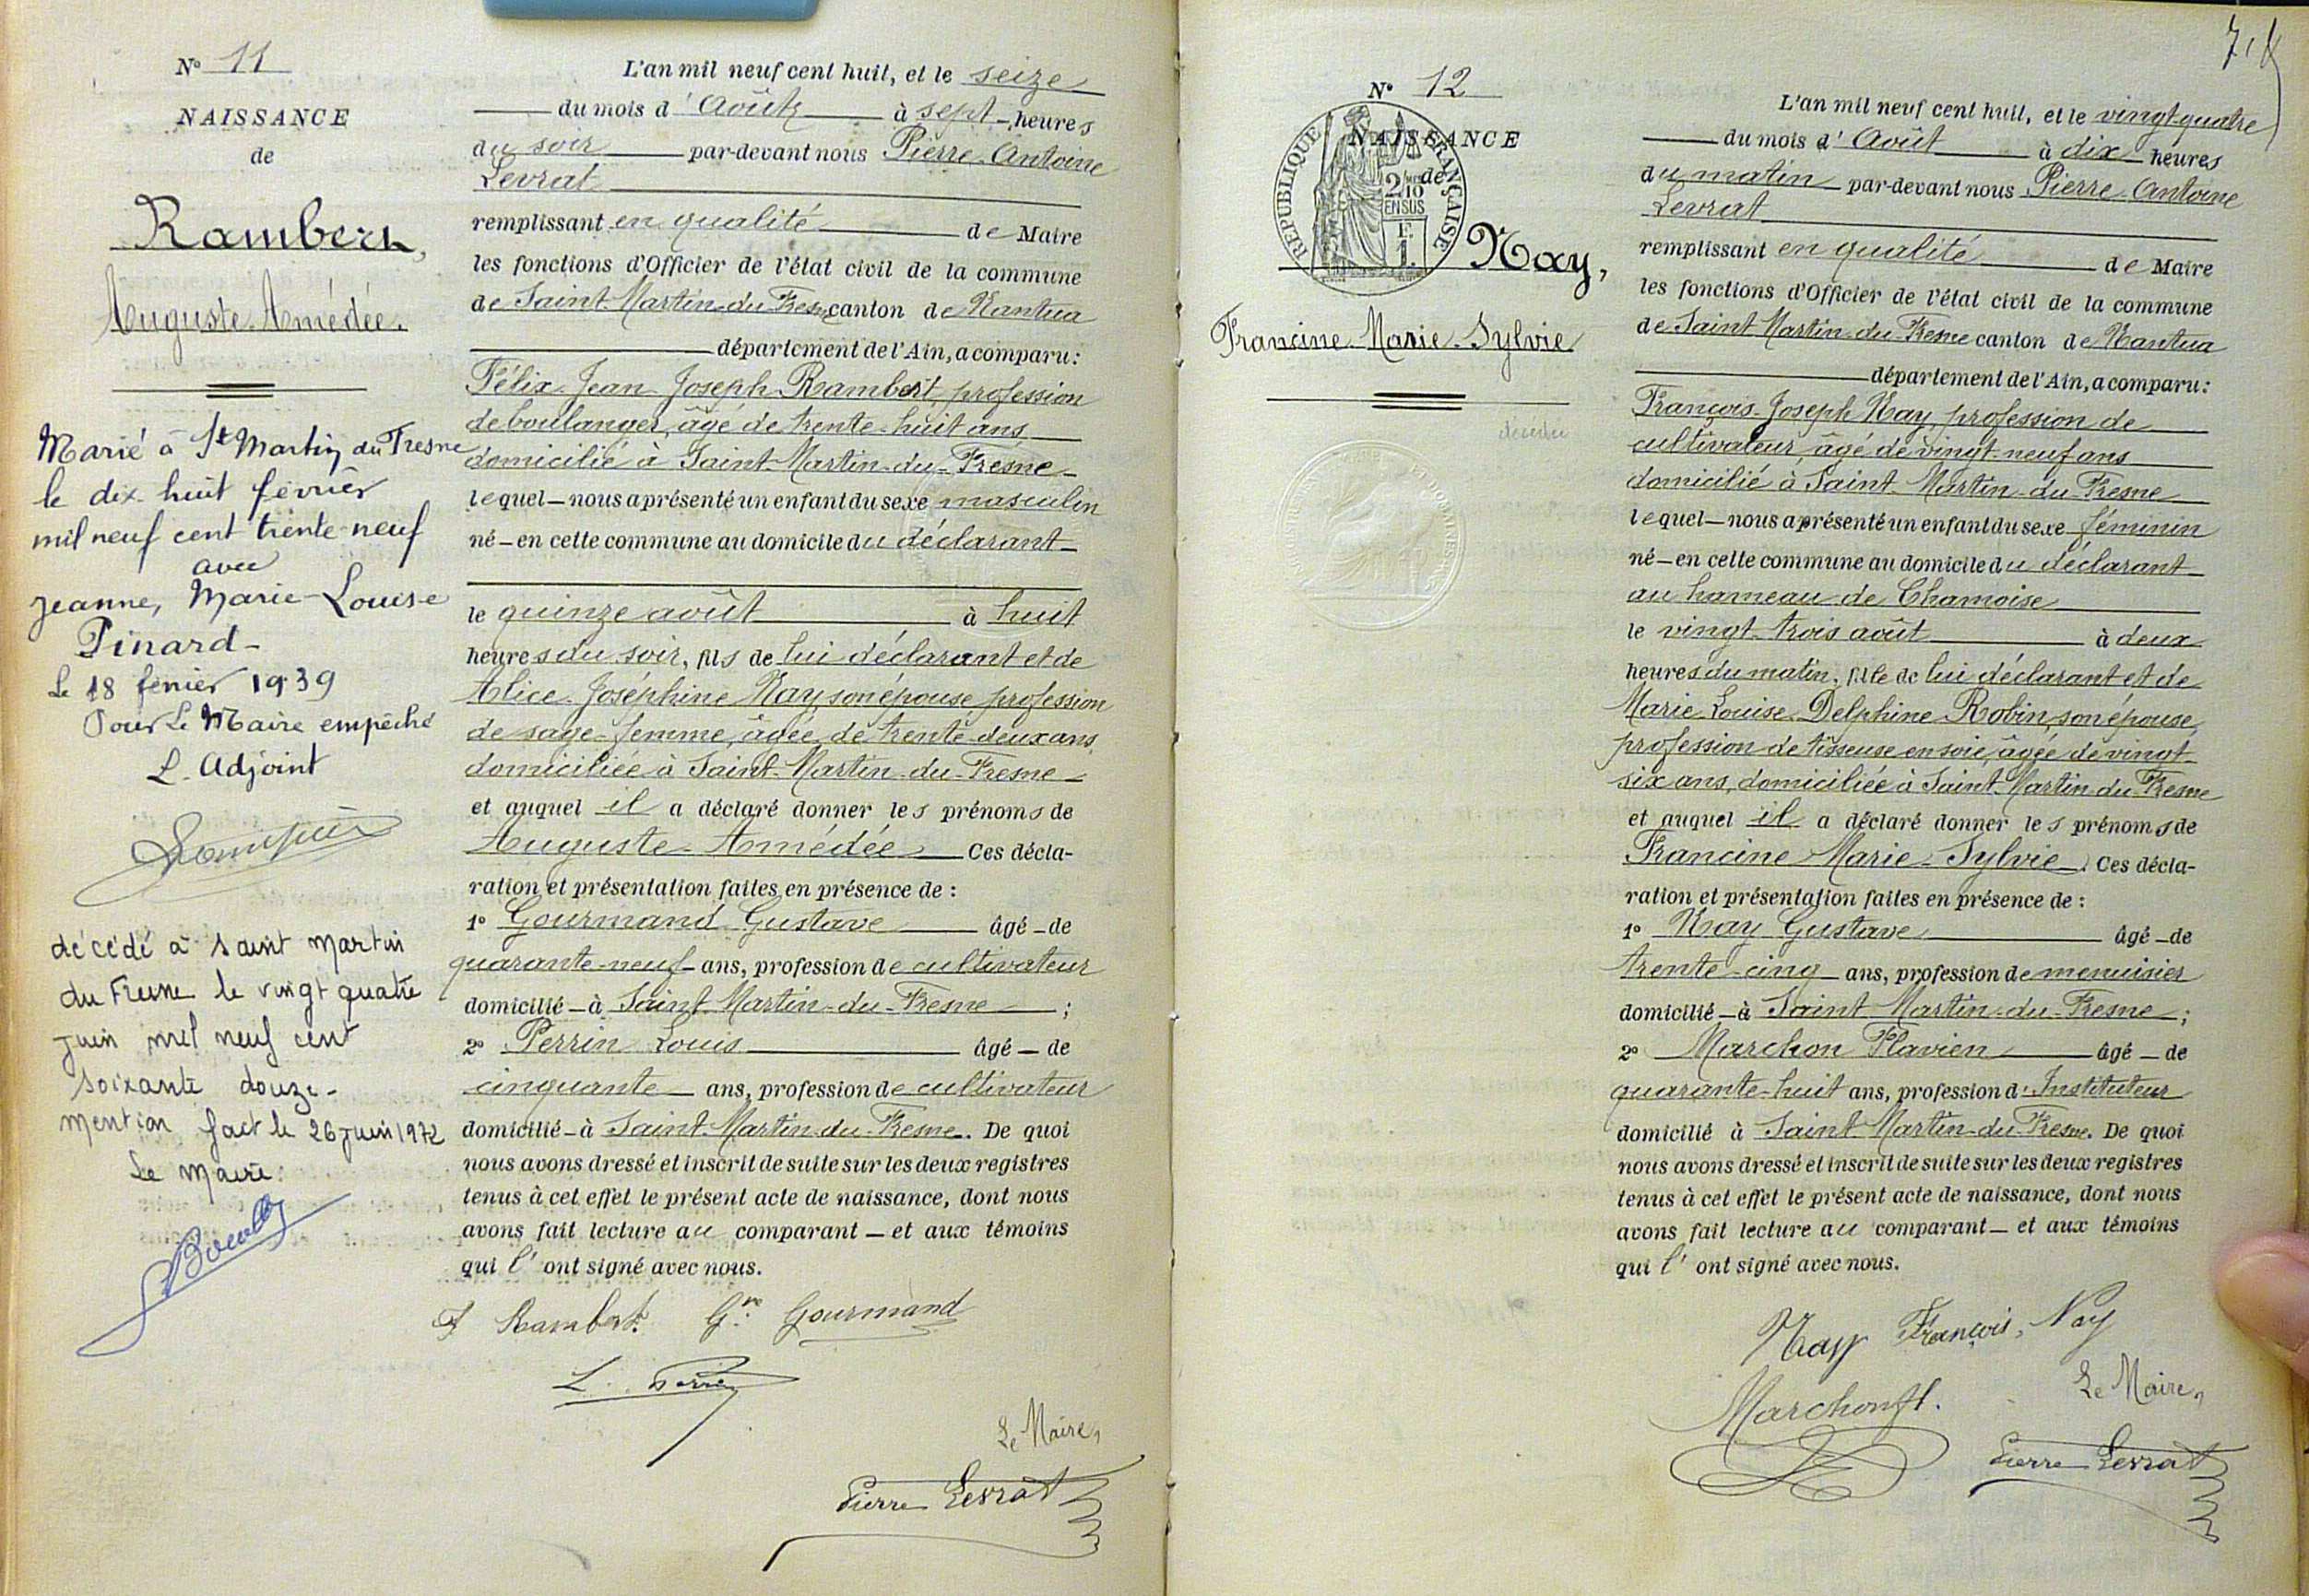 N° 11
NAISSANCE
de
Rambert,
Auguste Amédée.
Marié à St Martin du Fresne
le dix huit février
mil neuf cent trente-neuf
avec
Jeanne, Marie-Louise
Pinard-
Le 18 février 1939
Pour Le Maire empêché
L. Adjoint
décédé à Saint Martin
du Fresne le vingt quatre
juin mil neuf cent
soixante douze-
mention fact le 26 juin 1972
Le Maire
L'an mil neuf cent huit, et le seize
du mois d'Août à sept heures
du soir par-devant nous Pierre Antoine
Levrat
remplissant en qualité de Maire
les fonctions d'Officier de l'état civil de la commune
de Saint-Martin-du-Fresne canton de Nantua
département de l'Ain, a comparu:
Félix Jean Joseph Rambert, profession
de boulanger, âgé de trente-huit ans
domicilié à Saint-Martin-du-Fresne
lequel nous a présenté un enfant du sexe masculin
né en cette commune au domicile du déclarant
le quinze août à huit
heures du soir, fils de lui déclarant et de
Alice Joséphine Nay son épouse profession
de sage-femme, âgée de trente-deux ans,
domiciliée à Saint-Martin-du-Fresne
et auquel il a déclaré donner les prénoms de
Auguste Amédée Ces décla-
ration et présentation faites en présence de :
1° Gourmand Gustave âgé de
quarante-neuf ans, profession de cultivateur
domicilié à Saint-Martin-du-Fresne ;
2° Perrin Louis âgé de
cinquante ans, profession de cultivateur
domicilié à Saint-Martin-du-Fresne. De quoi
nous avons dressé et inscrit de suite sur les deux registres
tenus à cet effet le présent acte de naissance, dont nous
avons fait lecture au comparant et aux témoins
qui l'ont signé avec nous.
F Rambert Gve Gourmand
L. Perrin
Le Maire,
Pierre Levrat
N° 12
NAISSANCE
de
RÉPUBLIQUE FRANÇAISE
2/10
EN SUS
F.
1.
Nay,
Francine Marie Sylvie
décédée
L'an mil neuf cent huit, et le vingt-quatre
du mois d'Août à dix heures
du matin par-devant nous Pierre Antoine
Levrat
remplissant en qualité de Maire
les fonctions d'Officier de l'état civil de la commune
de Saint-Martin-du-Fresne canton de Nantua
département de l'Ain, a comparu:
François Joseph Nay, profession de
cultivateur, âgé de vingt-neuf ans
domicilié à Saint-Martin-du-Fresne
lequel nous a présenté un enfant du sexe féminin
né en cette commune au domicile du déclarant
au hameau de Chamoise
le vingt-trois août à deux
heures du matin, fille de lui déclarant et de
Marie Louise Delphine Robin, son épouse,
profession de tisseuse en soie, âgée de vingt-
six ans, domiciliée à Saint-Martin-du-Fresne
et auquel il a déclaré donner les prénoms de
Francine Marie Sylvie. Ces décla-
ration et présentation faites en présence de :
1° Nay Gustave âgé de
trente-cinq ans, profession de menuisier
domicilié à Saint-Martin-du-Fresne ;
2° Marchon Flavien âgé de
quarante-huit ans, profession d'Instituteur
domicilié à Saint-Martin-du-Fresne. De quoi
nous avons dressé et inscrit de suite sur les deux registres
tenus à cet effet le présent acte de naissance, dont nous
avons fait lecture au comparant et aux témoins
qui l'ont signé avec nous.
Nay François, Nay
Marchon fl.
Le Maire,
Pierre Levrat